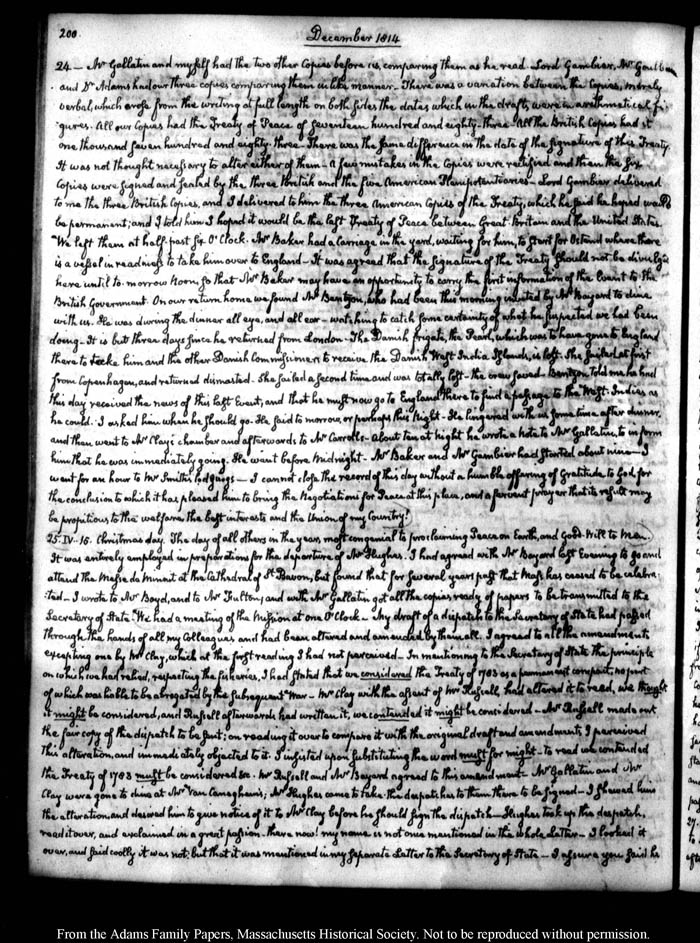 200.
December 1814
24 — Mr Gallatin and myself had the two other Copies before us, comparing them as he read. Lord Gambier, Mr Goulburn
and Dr Adams had our three copies comparing them in like manner. There was a variation between the Copies, merely
verbal, which arose from the writing at full length on both sides the dates which in the drafts, were in arithmetical fi-
gures. All our Copies had the Treaty of Peace of seventeen hundred and eighty-three. All the British Copies had it
one thousand seven hundred and eighty-three. There was the same difference in the date of the signature of this Treaty.
It was not thought necessary to alter either of them. A few mistakes in the Copies were rectified and then the six
Copies were signed and sealed by the three British and the five American Plenipotentiaries. Lord Gambier delivered
to me the three British Copies, and I delivered to him the three American Copies of the Treaty, which he said he hoped would
be permanent; and I told him I hoped it would be the last Treaty of Peace between Great-Britain and the United States
We left them at half-past six O'Clock. Mr Baker had a carriage in the yard, waiting for him, to start for Ostend where there
is a vessel in readiness to take him over to England. It was agreed that the signature of the Treaty should not be divulged
here until to-morrow Noon, so that Mr Baker may have an opportunity to carry the first information of the Event to the
British Government. On our return home we found Mr Bentzon, who had been this morning invited by Mr Bayard to dine
with us. He was during the dinner all eye, and all ear — watching to catch some certainty of what he suspected we had been
doing. It is but three days since he returned from London. The Danish frigate, the Pearl, which was to have gone to England
there to take him and the other Danish Commissioner to receive the Danish West India Islands, is lost. She sailed at first
from Copenhagen, and returned dismasted. She sailed a second time and was totally lost — the crew saved. Bentzon told me he had
this day received the news of this last Event, and that he must now go to England, there to find a passage to the West-Indies as
he could. I asked him when he should go. He said to-morrow, or perhaps this Night. He lingered with us some time after dinner,
and then went to Mr Clay's chamber and afterwards to Mr Carroll's. About ten at Night he wrote a note to Mr Gallatin, to inform
him that he was immediately going. He went before Midnight. Mr Baker and Mr Gambier had started about nine — I
went for an hour to Mr Smith's lodgings — I cannot close the record of this day without a humble offering of Gratitude to God, for
the conclusion to which it has pleased him to bring the Negotiations for Peace at this place, and a fervent prayer that its result may
be propitious to the welfare, the best interests and the Union of my Country!
25. IV. 15. Christmas day. The day of all others in the year, most congenial to proclaiming Peace on Earth, and Good-Will to Men.
It was entirely employed in preparations for the departure of Mr Hughes. I had agreed with Mr Boyard last Evening to go and
attend the Messe de Minuit at the Cathedral of St Bavon, but found that for several years past that Mass has ceased to be celebra-
:ted — I wrote to Mr Boyd, and to Mr Fulton; and with Mr Gallatin got all the copies ready of papers to be transmitted to the
Secretary of State. We had a meeting of the Mission at one O'Clock. My draft of a dispatch to the Secretary of State had passed
through the hands of all my Colleagues and had been altered and amended by them all. I agreed to all the amendments
excepting one by Mr Clay, which at the first reading I had not perceived. In mentioning to the Secretary of State the principle
on which we had relied, respecting the fisheries, I had stated that we considered the Treaty of 1783 as a permanent compact, no part
of which was liable to be abrogated by the subsequent War. Mr Clay with the assent of Mr Russell, had altered it to read, we thought
it might be considered, and Russell afterwards had written it, we contended it might be considered. Mr Russell made out
the fair copy of the dispatch to be sent; on reading it over to compare it with the original draft and amendments I perceived
this alteration, and immediately objected to it. I insisted upon substituting the word must for might — to read we contended
the Treaty of 1783 must be considered &c. Mr Russell and Mr Bayard agreed to this amendment. Mr Gallatin and Mr
Clay were gone to dine at Mr Van Caneghem's; Mr Hughes came to take the dispatches to them there to be signed. I shewed him
the alteration, and desired him to give notice of it to Mr Clay before he should sign the dispatch. Hughes took up the dispatch,
read it over, and exclaimed in a great passion. there now! my name is not once mentioned in the whole Letter. I looked it
over, and said coolly it was not; but that it was mentioned in my separate Letter to the Secretary of State. I assure you said he
From the Adams Family Papers, Massachusetts Historical Society. Not to be reproduced without permission.